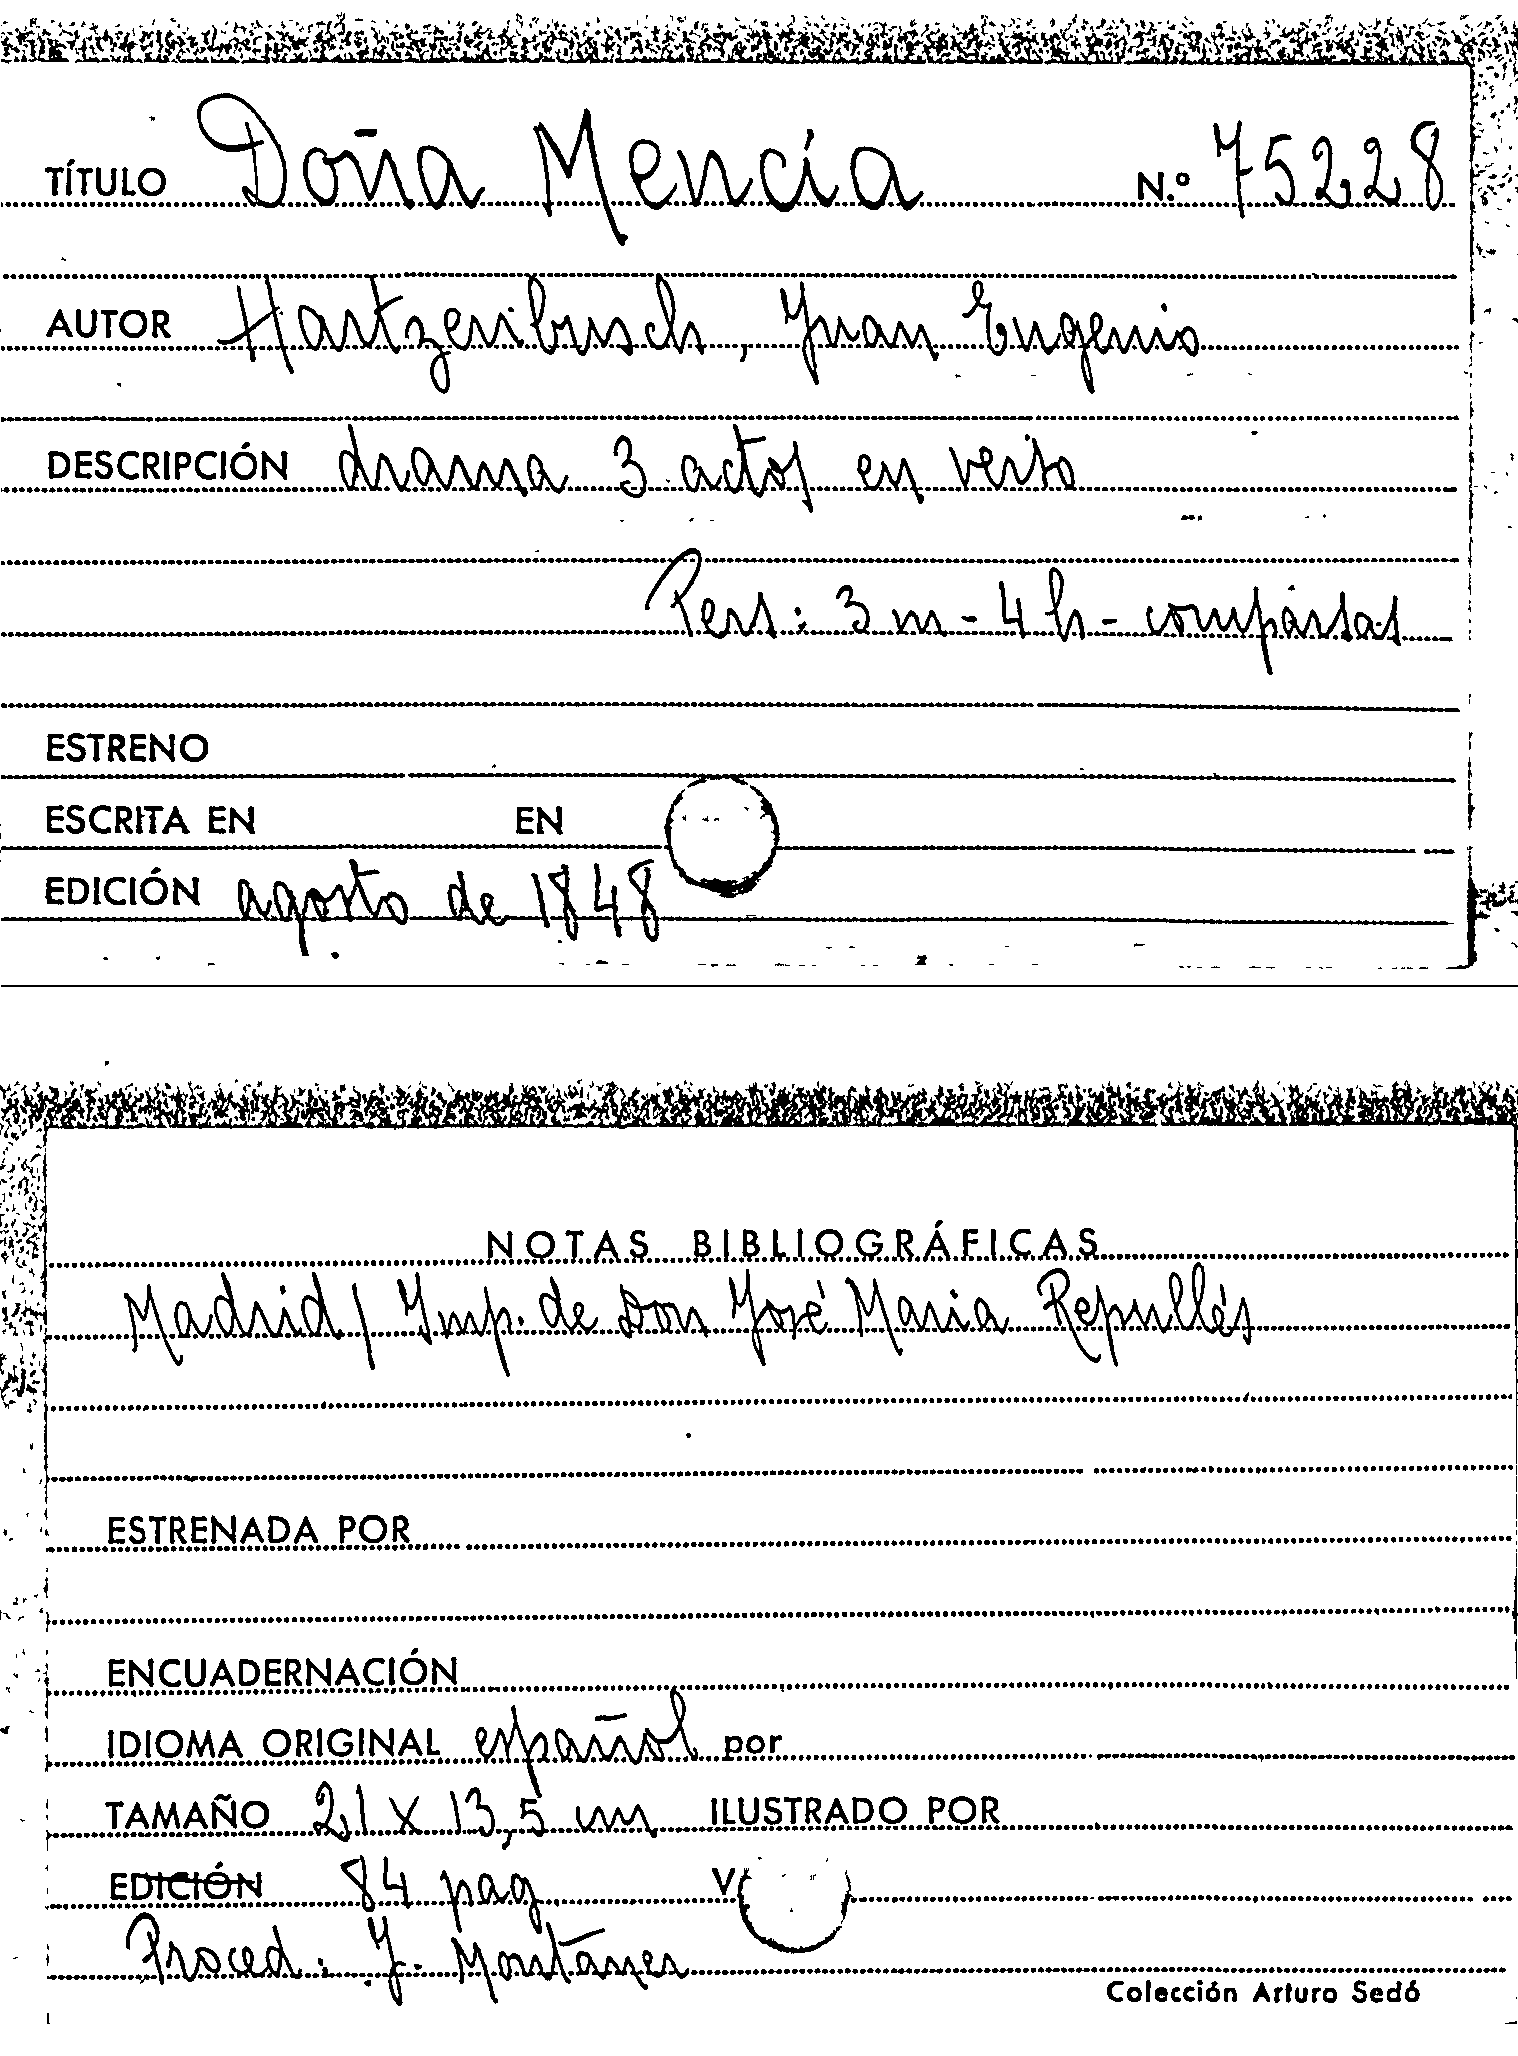 TÍTULO Doña Mencía N.º 75228
AUTOR Hartzenbusch, Juan Eugenio
DESCRIPCIÓN drama 3 actos en verso
Pers: 3 m - 4 h - comparsas
ESTRENO
ESCRITA EN EN
EDICIÓN agosto de 1848
NOTAS BIBLIOGRÁFICAS
Madrid / Imp. de Don José Maria Repullés
ESTRENADA POR
ENCUADERNACIÓN
IDIOMA ORIGINAL español por
TAMAÑO 21 x 13,5 cm ILUSTRADO POR
EDICIÓN 84 pag V
Proced: J. Montañer
Colección Arturo Sedó